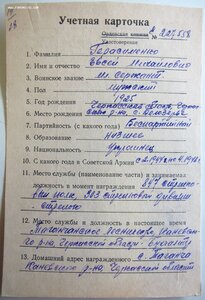 Учетная карточка
Орденская книжка № 227558
Удостоверение
1. Фамилия Герасименко
2. Имя и отчество Евсей Михайлович
3. Воинское звание мл. сержант
4. Пол мужской
5. Год рождения 1925
6. Место рождения Черкасская область,
7. Партийность (с какого года) Беспартийный
8. Образование низшее
9. Национальность украинец
10. С какого года в Советской Армии С 1944 по 1948 г.
11. Место службы (наименование части) и занимаемая
должность в момент награждения
полк, 203 стрелковой дивизии
12. Место службы и должность в настоящее время
р-на Черкасской области
13. Домашний адрес награжденного
Каневского р-на Черкасской области